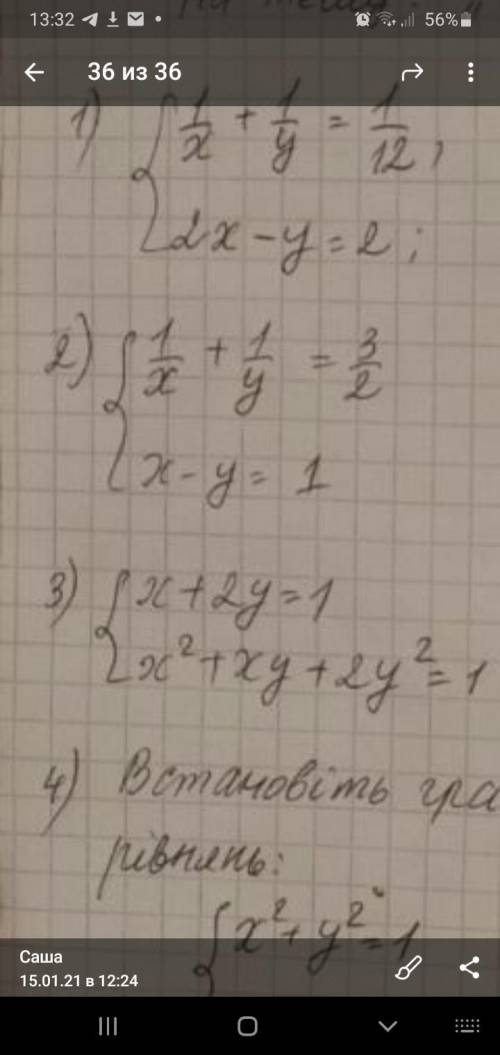 13:32 56%
36 из 36
1) { 1/x + 1/y = 1/12,
2x - y = 2;
2) { 1/x + 1/y = 3/2
x - y = 1
3) { x + 2y = 1
x² + xy + 2y² = 1
4) Встановіть гра
рівнянь:
{ x² + y² = 1
Саша
15.01.21 в 12:24